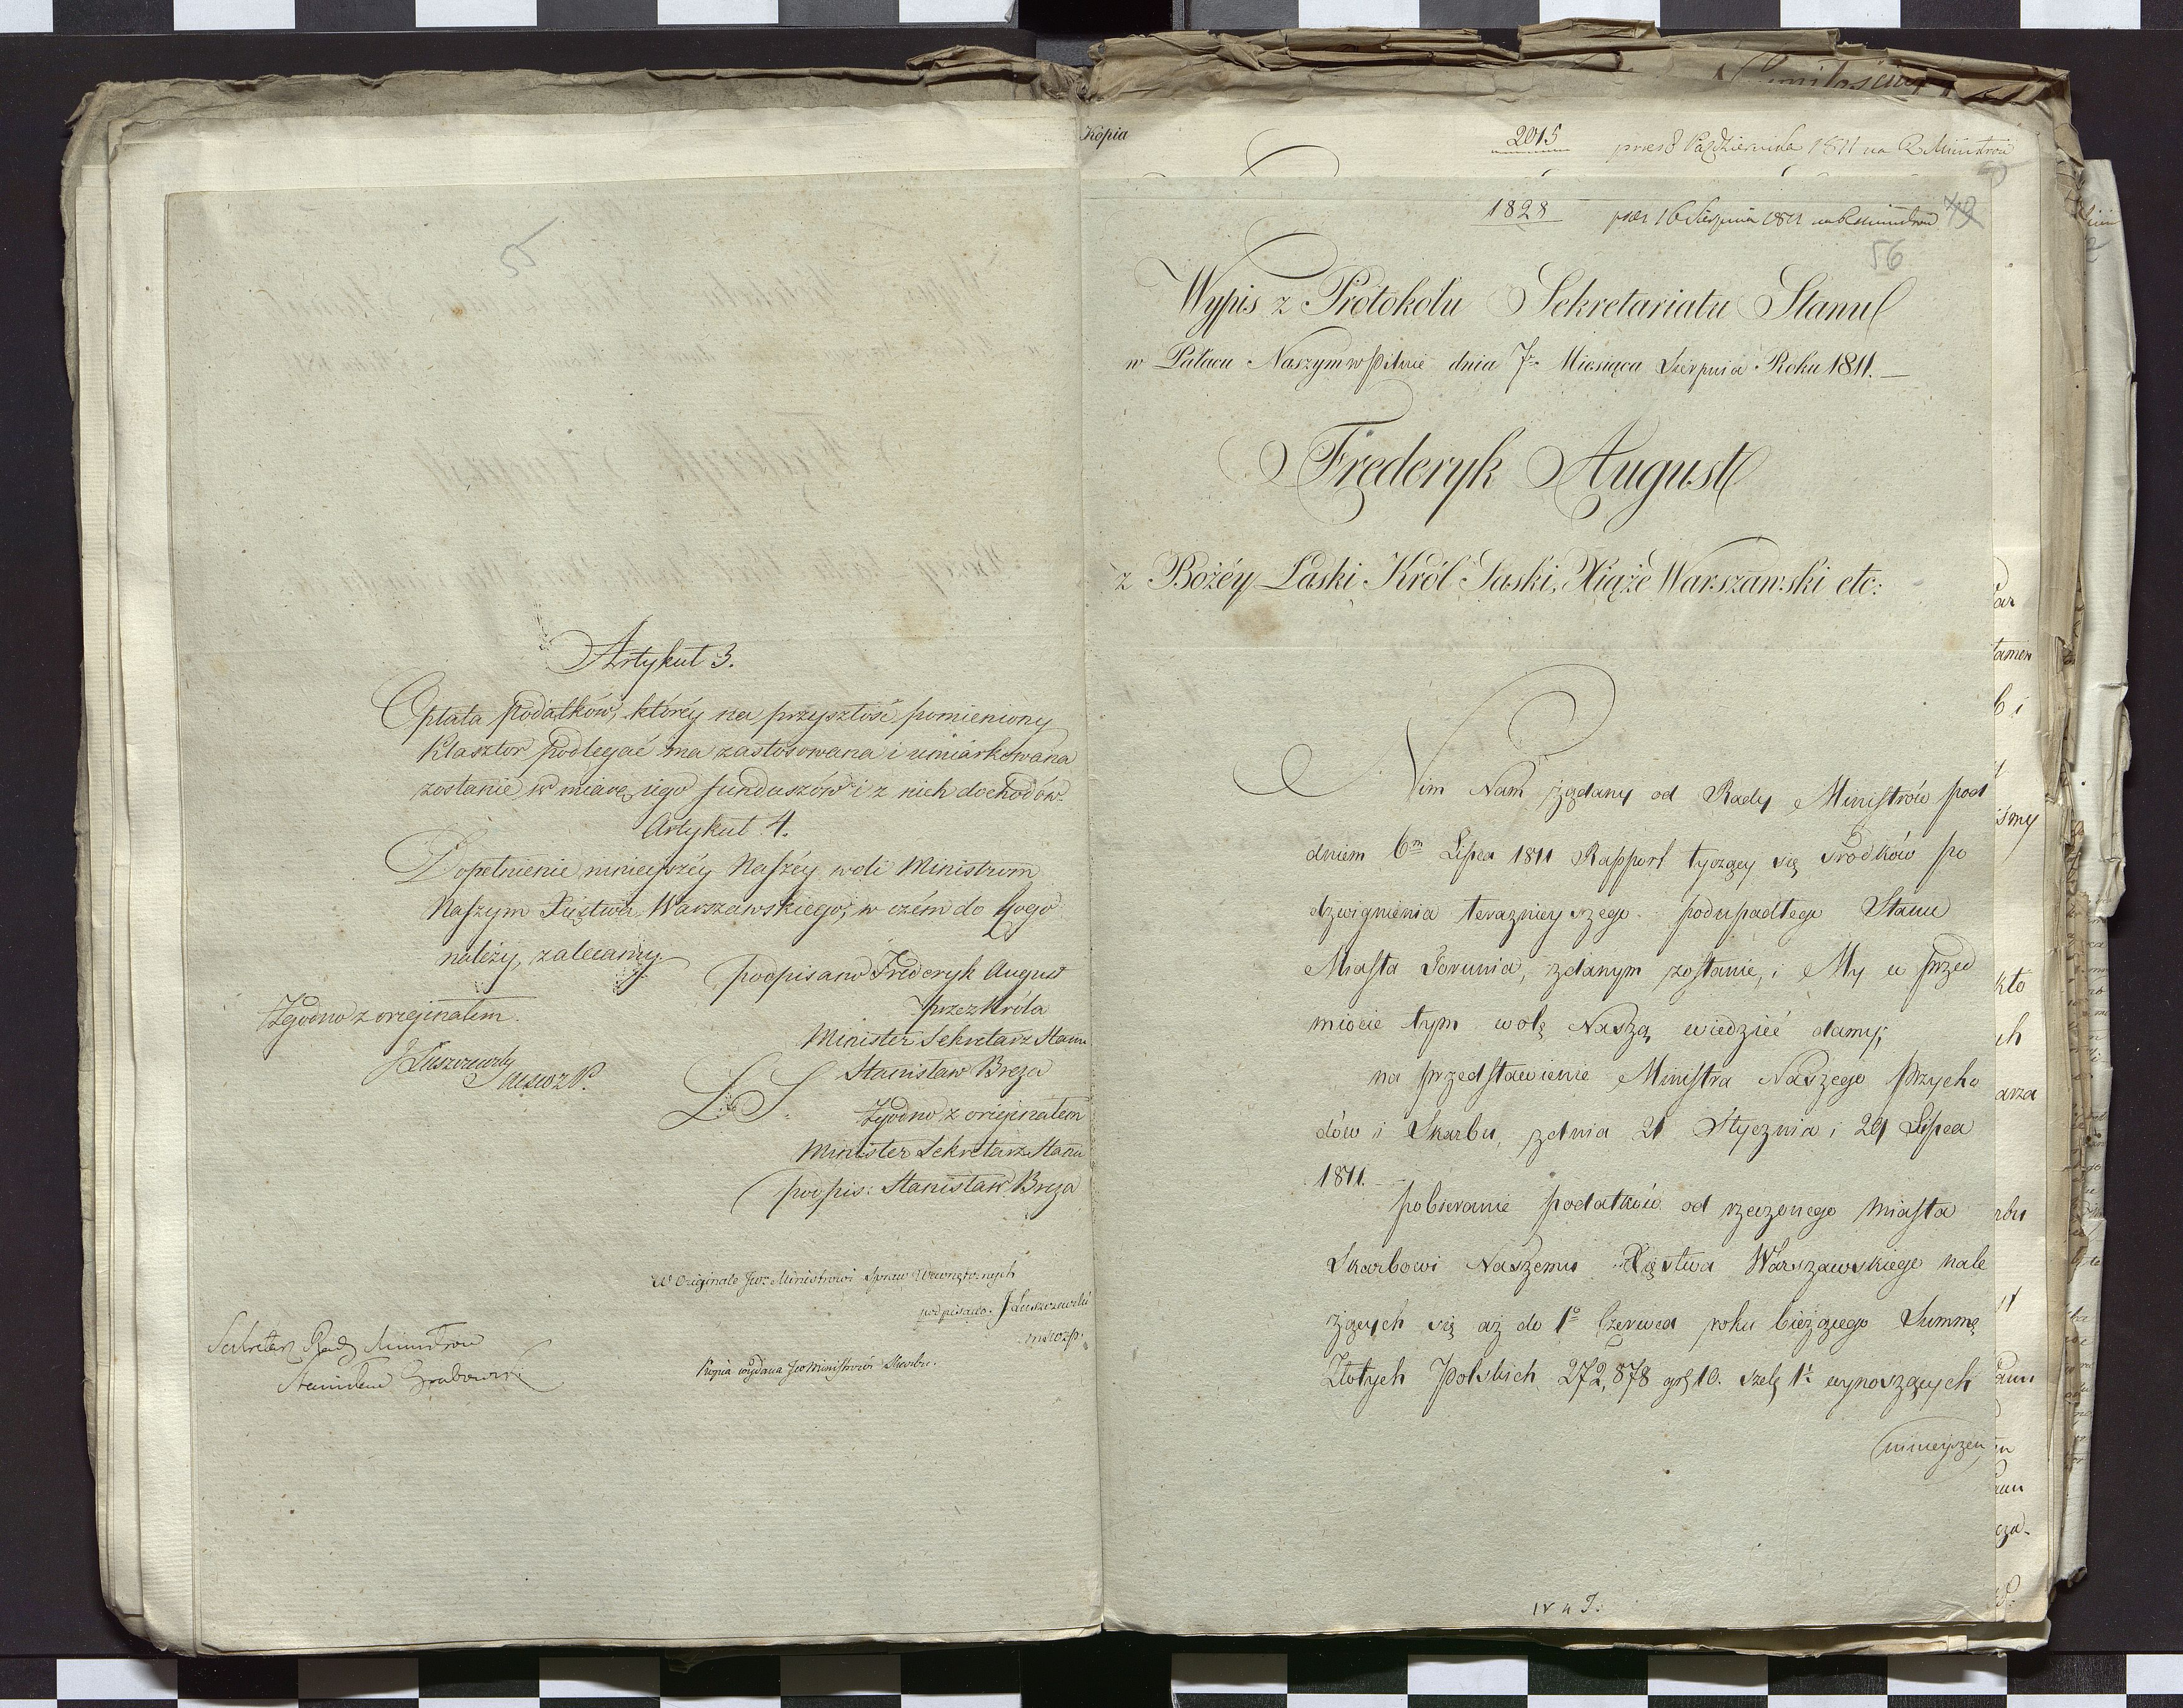 55
Artykuł 3.
Opłata podatków, któréy na przyszłość pomieniony
Klasztor podlegać ma zastosowana i umiarkowana
zostanie w miarę iego funduszów i z nich dochodów.
Artykuł 4.
Dopełnienie ninieyszéy Naszéy woli Ministrom
Naszym Xięztwa Warszawskiego, w czém do kogo
należy, zalecamy
podpisano Frederyk August
przez Króla
Zgodno z oryginałem.
Minister Sekretarz Stanu
J Łuszczewski
Stanisław Breza
L S.
Zgodno z oryginałem
Minister Sekretarz Stanu
podpis: Stanisław Breza
W Originale Jwo Ministrowi Spraw Wewnętrznych
podpisano. J Łuszczewski
Sekretarz Rady Ministrow
Stanisław Grabowski
Kopia wydana Jwo Ministrowi Skarbu.
Kopia
2015 praes 8 Października 1811 na R Ministrów
1828 praes 16 Sierpnia 1811 na R Ministrów 42
56
Wypis z Protokółu Sekretariatu Stanu
w Pałacu Naszym w Pilnic dnia 7. Miesiąca Sierpnia Roku 1811.
Frederyk August
z Bożéy Łaski Król Saski, Xiąże Warszawski etc:
Nim Nam żądany od Rady Ministrów pod
dniem 6m Lipca 1811 Rapport tyczący się środków po
dzwignienia teraznieyszego podupadłego Stanu
Miasta Torunia, zdanym zostanie, i My w przed
miocie tym wolę Naszą wiedzieć damy;
na przedstawienie Ministra Naszego Przycho
dów i Skarbu, z dnia 21 Stycznia i 29 Lipca
1811.
pobieranie podatków od rzeczonego Miasta
Skarbowi Naszemu Xięstwa Warszawskiego nale
żących się aż do 1o Czerwca roku bieżącego Summę
Złotych Polskich 272,878 gr 10. szelą 1. wynoszących
ninieyszem